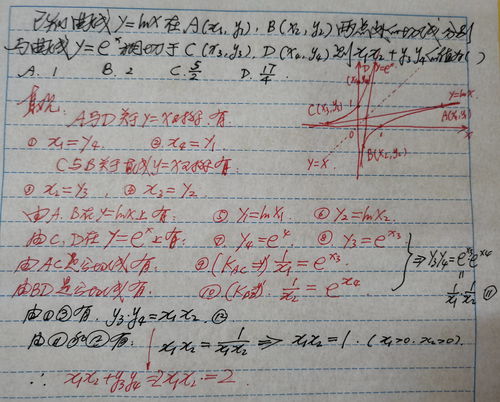 已知曲线 y=lnx 在 A(x₁,y₁), B(x₂,y₂) 两点处的切线分别
与曲线 y=eˣ 相切于 C(x₃,y₃), D(x₄,y₄) 则 x₁x₂+y₃y₄的值为( )
A. 1 B. 2 C. 5/2 D. 17/4
y=eˣ
y=lnx
C(x₃,y₃)
A(x₁,y₁)
B(x₂,y₂)
y=x
A与D关于y=x对称有.
① x₁=y₄. ② x₄=y₁
C与B关于直线y=x对称有.
③ x₂=y₃ ④ x₃=y₂
由A.B在y=lnx上有: ⑤ y₁=lnx₁ ⑥ y₂=lnx₂.
由C.D在y=eˣ上有: ⑦ y₄=e^x₄ ⑧ y₃=e^x₃
由AC是公切线有: ⑨ (K_AC=) 1/x₁=e^x₃
由BD是公切线有: ⑩ (K_BD=) 1/x₂=e^x₄
⇒ y₃y₄=e^x₃e^x₄ = 1/x₁·1/x₂ ⑪
由①③有. y₃·y₄=x₁x₂ ⑫
由⑪和⑫有: x₁x₂=1/(x₁x₂) ⇒ x₁x₂=1. (x₁>0. x₂>0).
∴ x₁x₂+y₃y₄=2x₁x₂=2.